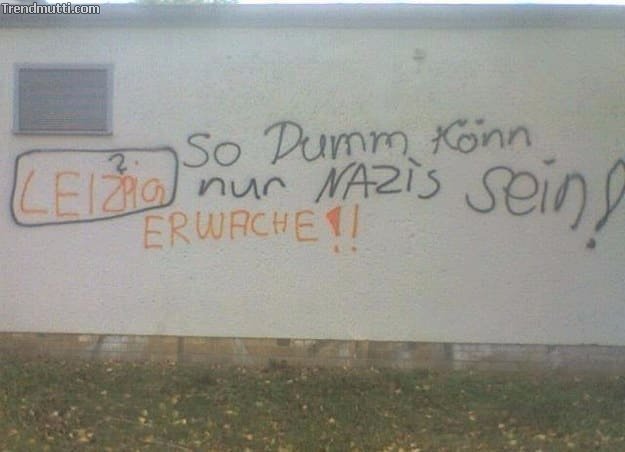 Trendmutti.com
So Dumm Könn
nur NAZiS sein!
?
LEIZPIG
ERWACHE!!